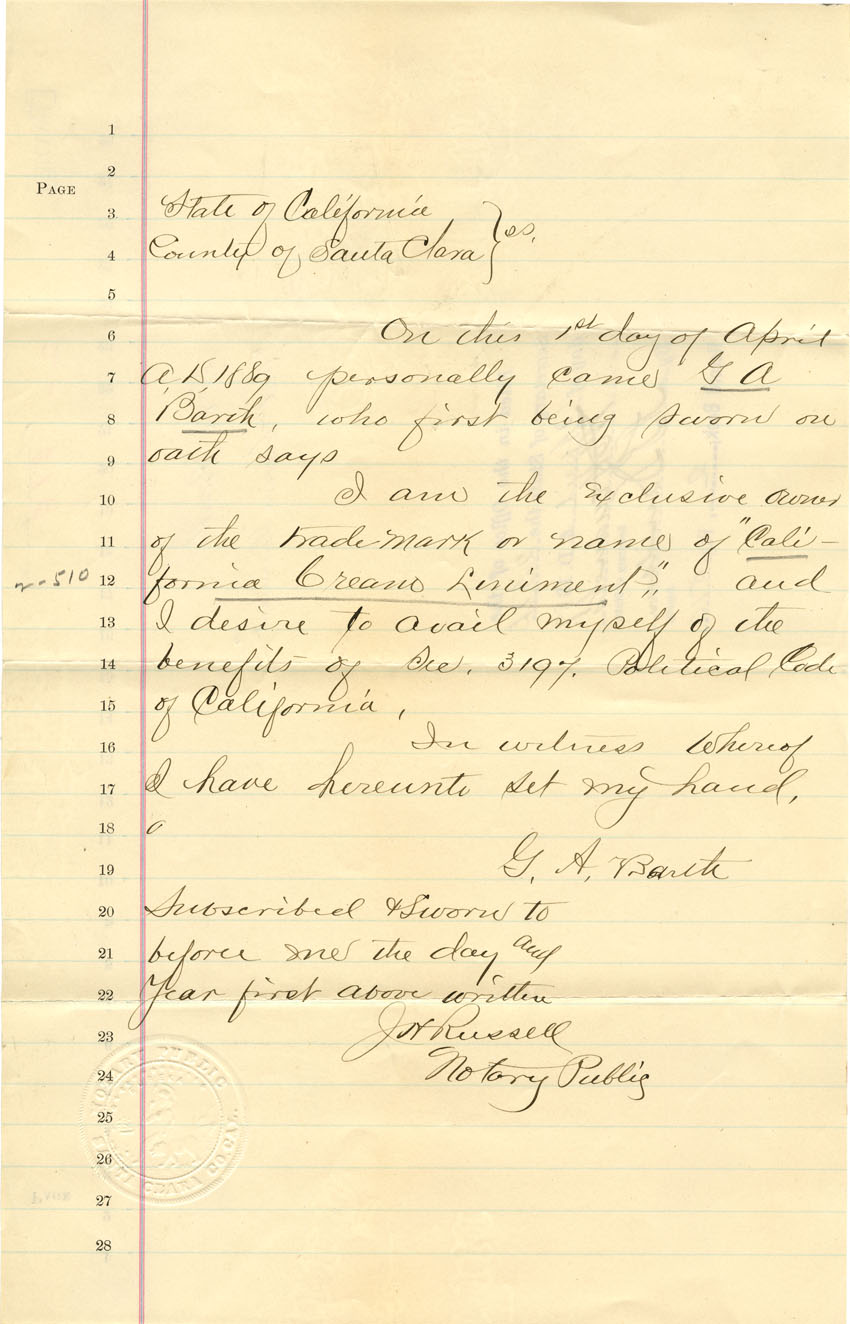 1
2
PAGE
3 State of California
4 County of Santa Clara } ss.
5
6 On this 1st day of April
7 A.D. 1889 personally came G A
8 Barth, who first being sworn on
9 oath says
10 I am the exclusive owner
11 of the trade mark or name of "Cali-
n-510
12 fornia Cream Liniment," and
13 I desire to avail myself of the
14 benefits of Sec. 3197. Political Code
15 of California,
16 In witness whereof
17 I have hereunto set my hand,
18
19 G. A. Barth
20 Subscribed & Sworn to
21 before me the day and
22 Year first above written
23 J H Russell
24 Notary Public
25
26
27
28
NOTARY PUBLIC
SANTA CLARA CO. CAL.